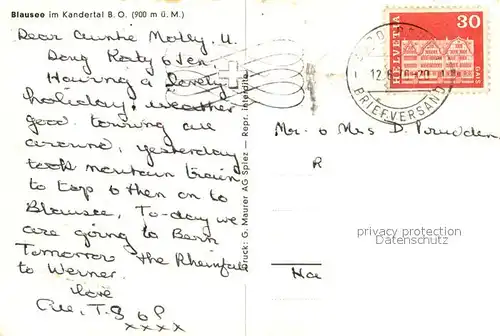 Blausee im Kandertal B.O. (900 m ü. M.)
Dear Auntie Molly, U.
Doug Katy & Len.
Having a lovely
holiday, weather
good touring all
around, yesterday
took mountain train
to top & then on to
Blausee. To-day we
are going to Bern
Tomorrow the Rheinfall
to Werner.
love
All. T. G & P
xxxx
Druck: G. Maurer AG Spiez — Repr. interdite
HELVETIA
30
12.6
BRIEFVERSAND
Mr. & Mrs D. Prudden
R
Ha
privacy protection
Datenschutz